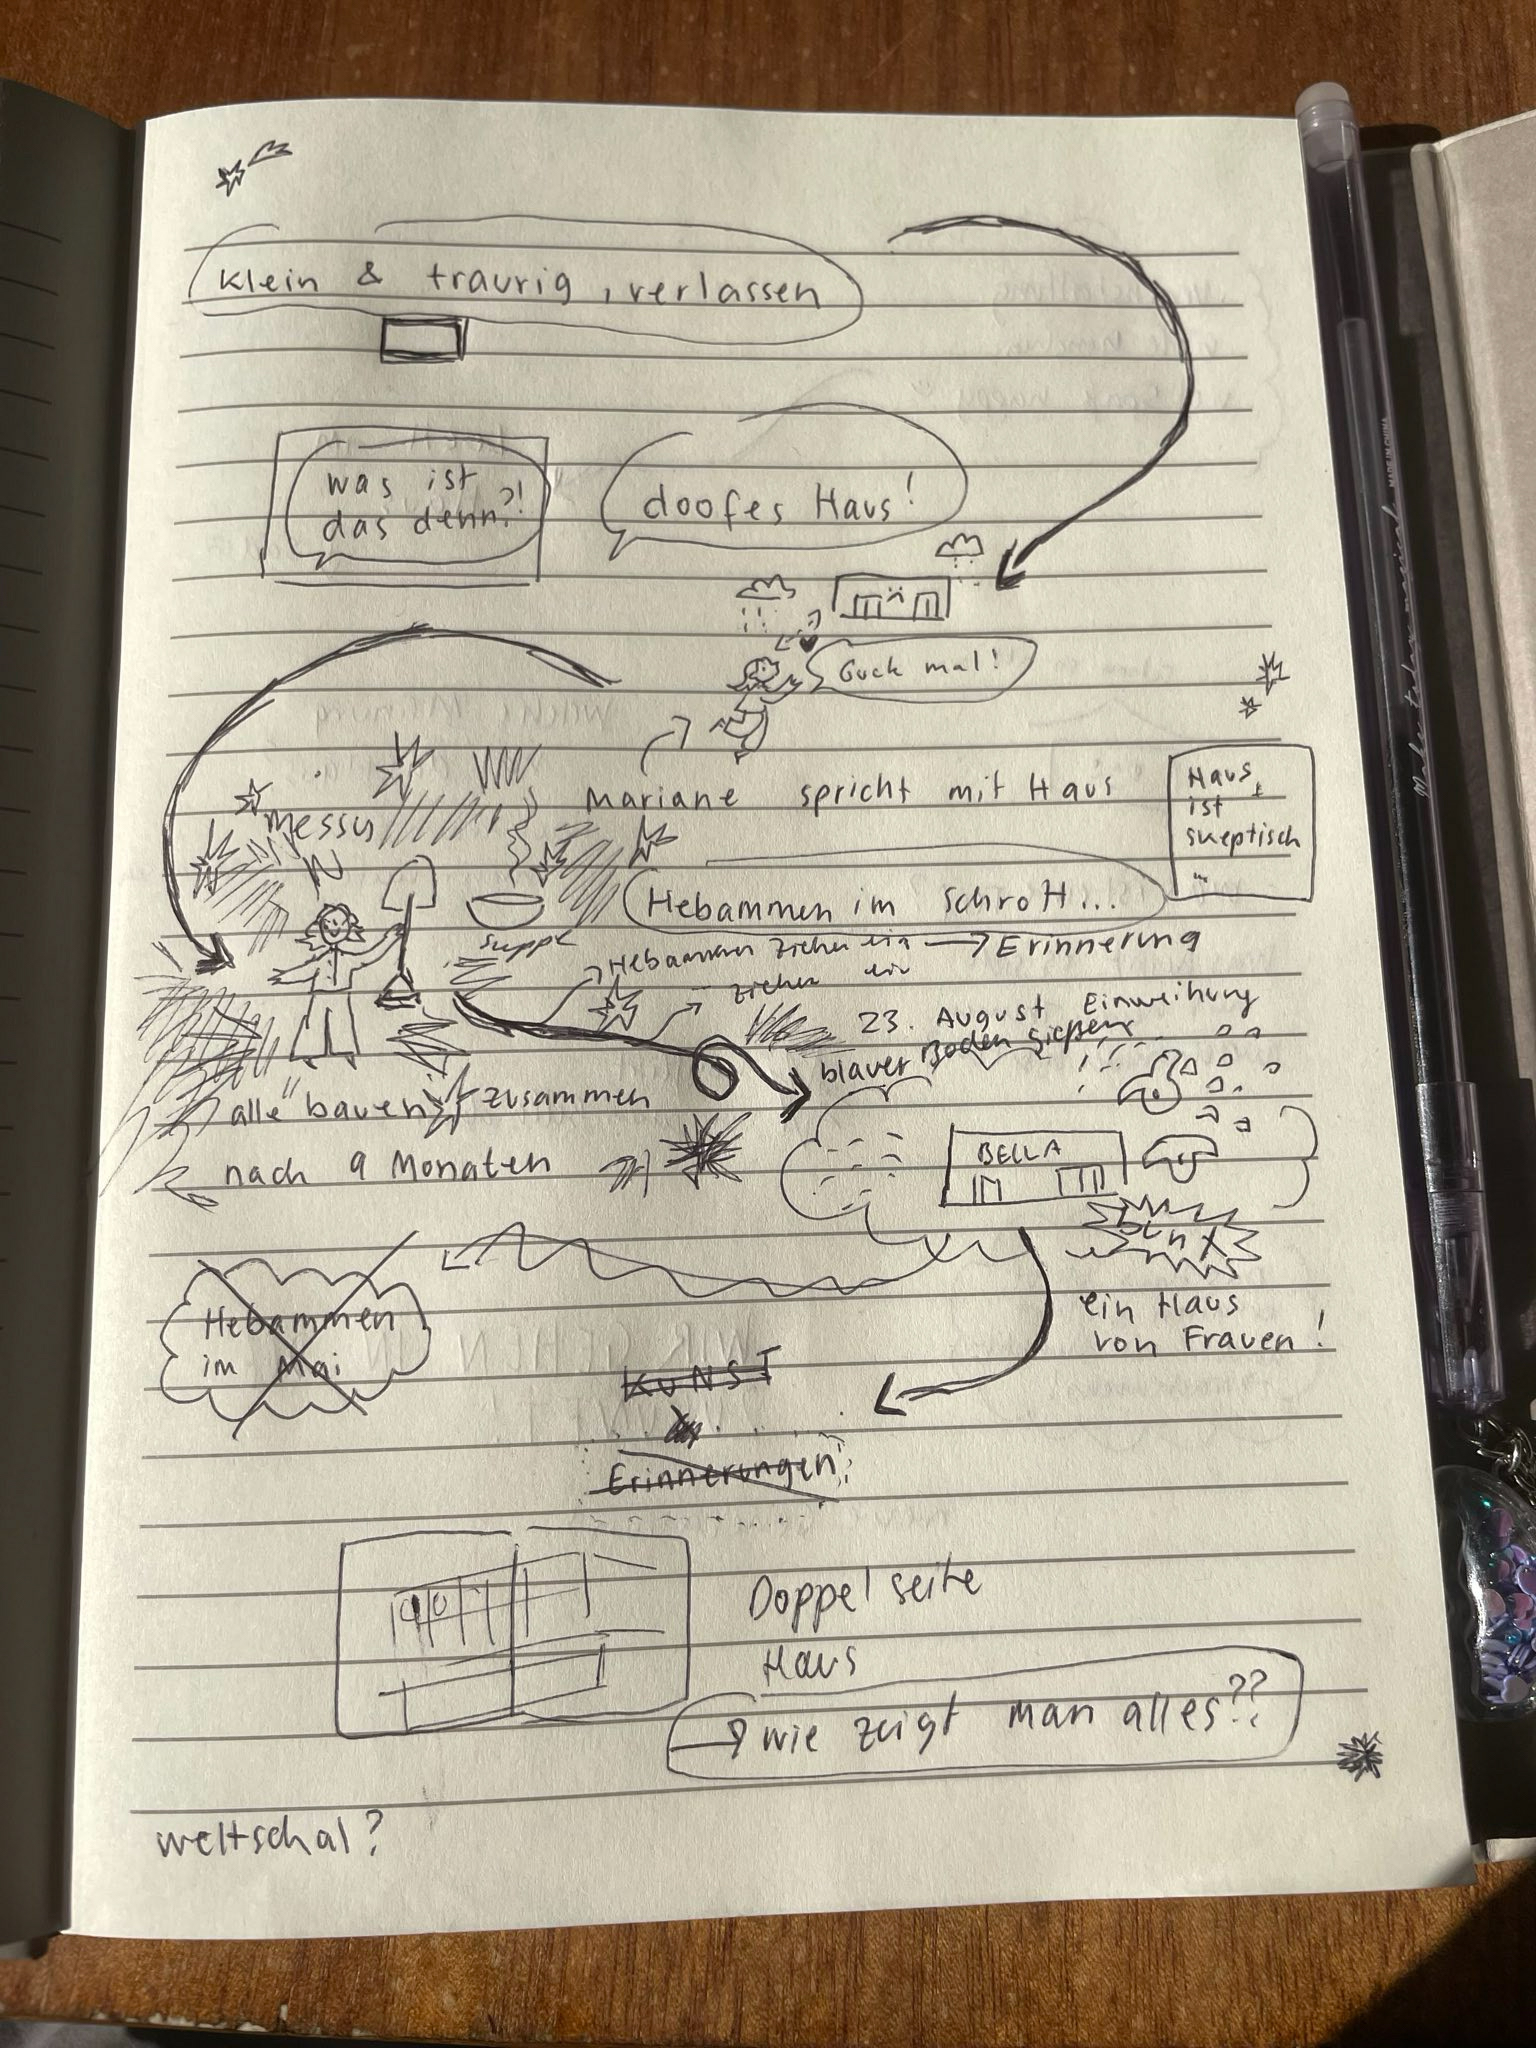 klein & traurig, verlassen
was ist
das denn?!
doofes Haus!
Guck mal!
Mariane spricht mit Haus
Haus
ist
skeptisch
messy
suppe
Hebammen im Schrott...
Hebammen ziehen ein → Erinnerung
ziehen ein
23. August Einweihung
blauer Boden
"alle" bauen zusammen
nach 9 Monaten
BELLA
ein Haus
von Frauen!
Hebammen
im Mai
KUNST
Erinnerungen
Doppelseite
Haus
→ wie zeigt man alles??
weltschal?
MADE IN CHINA